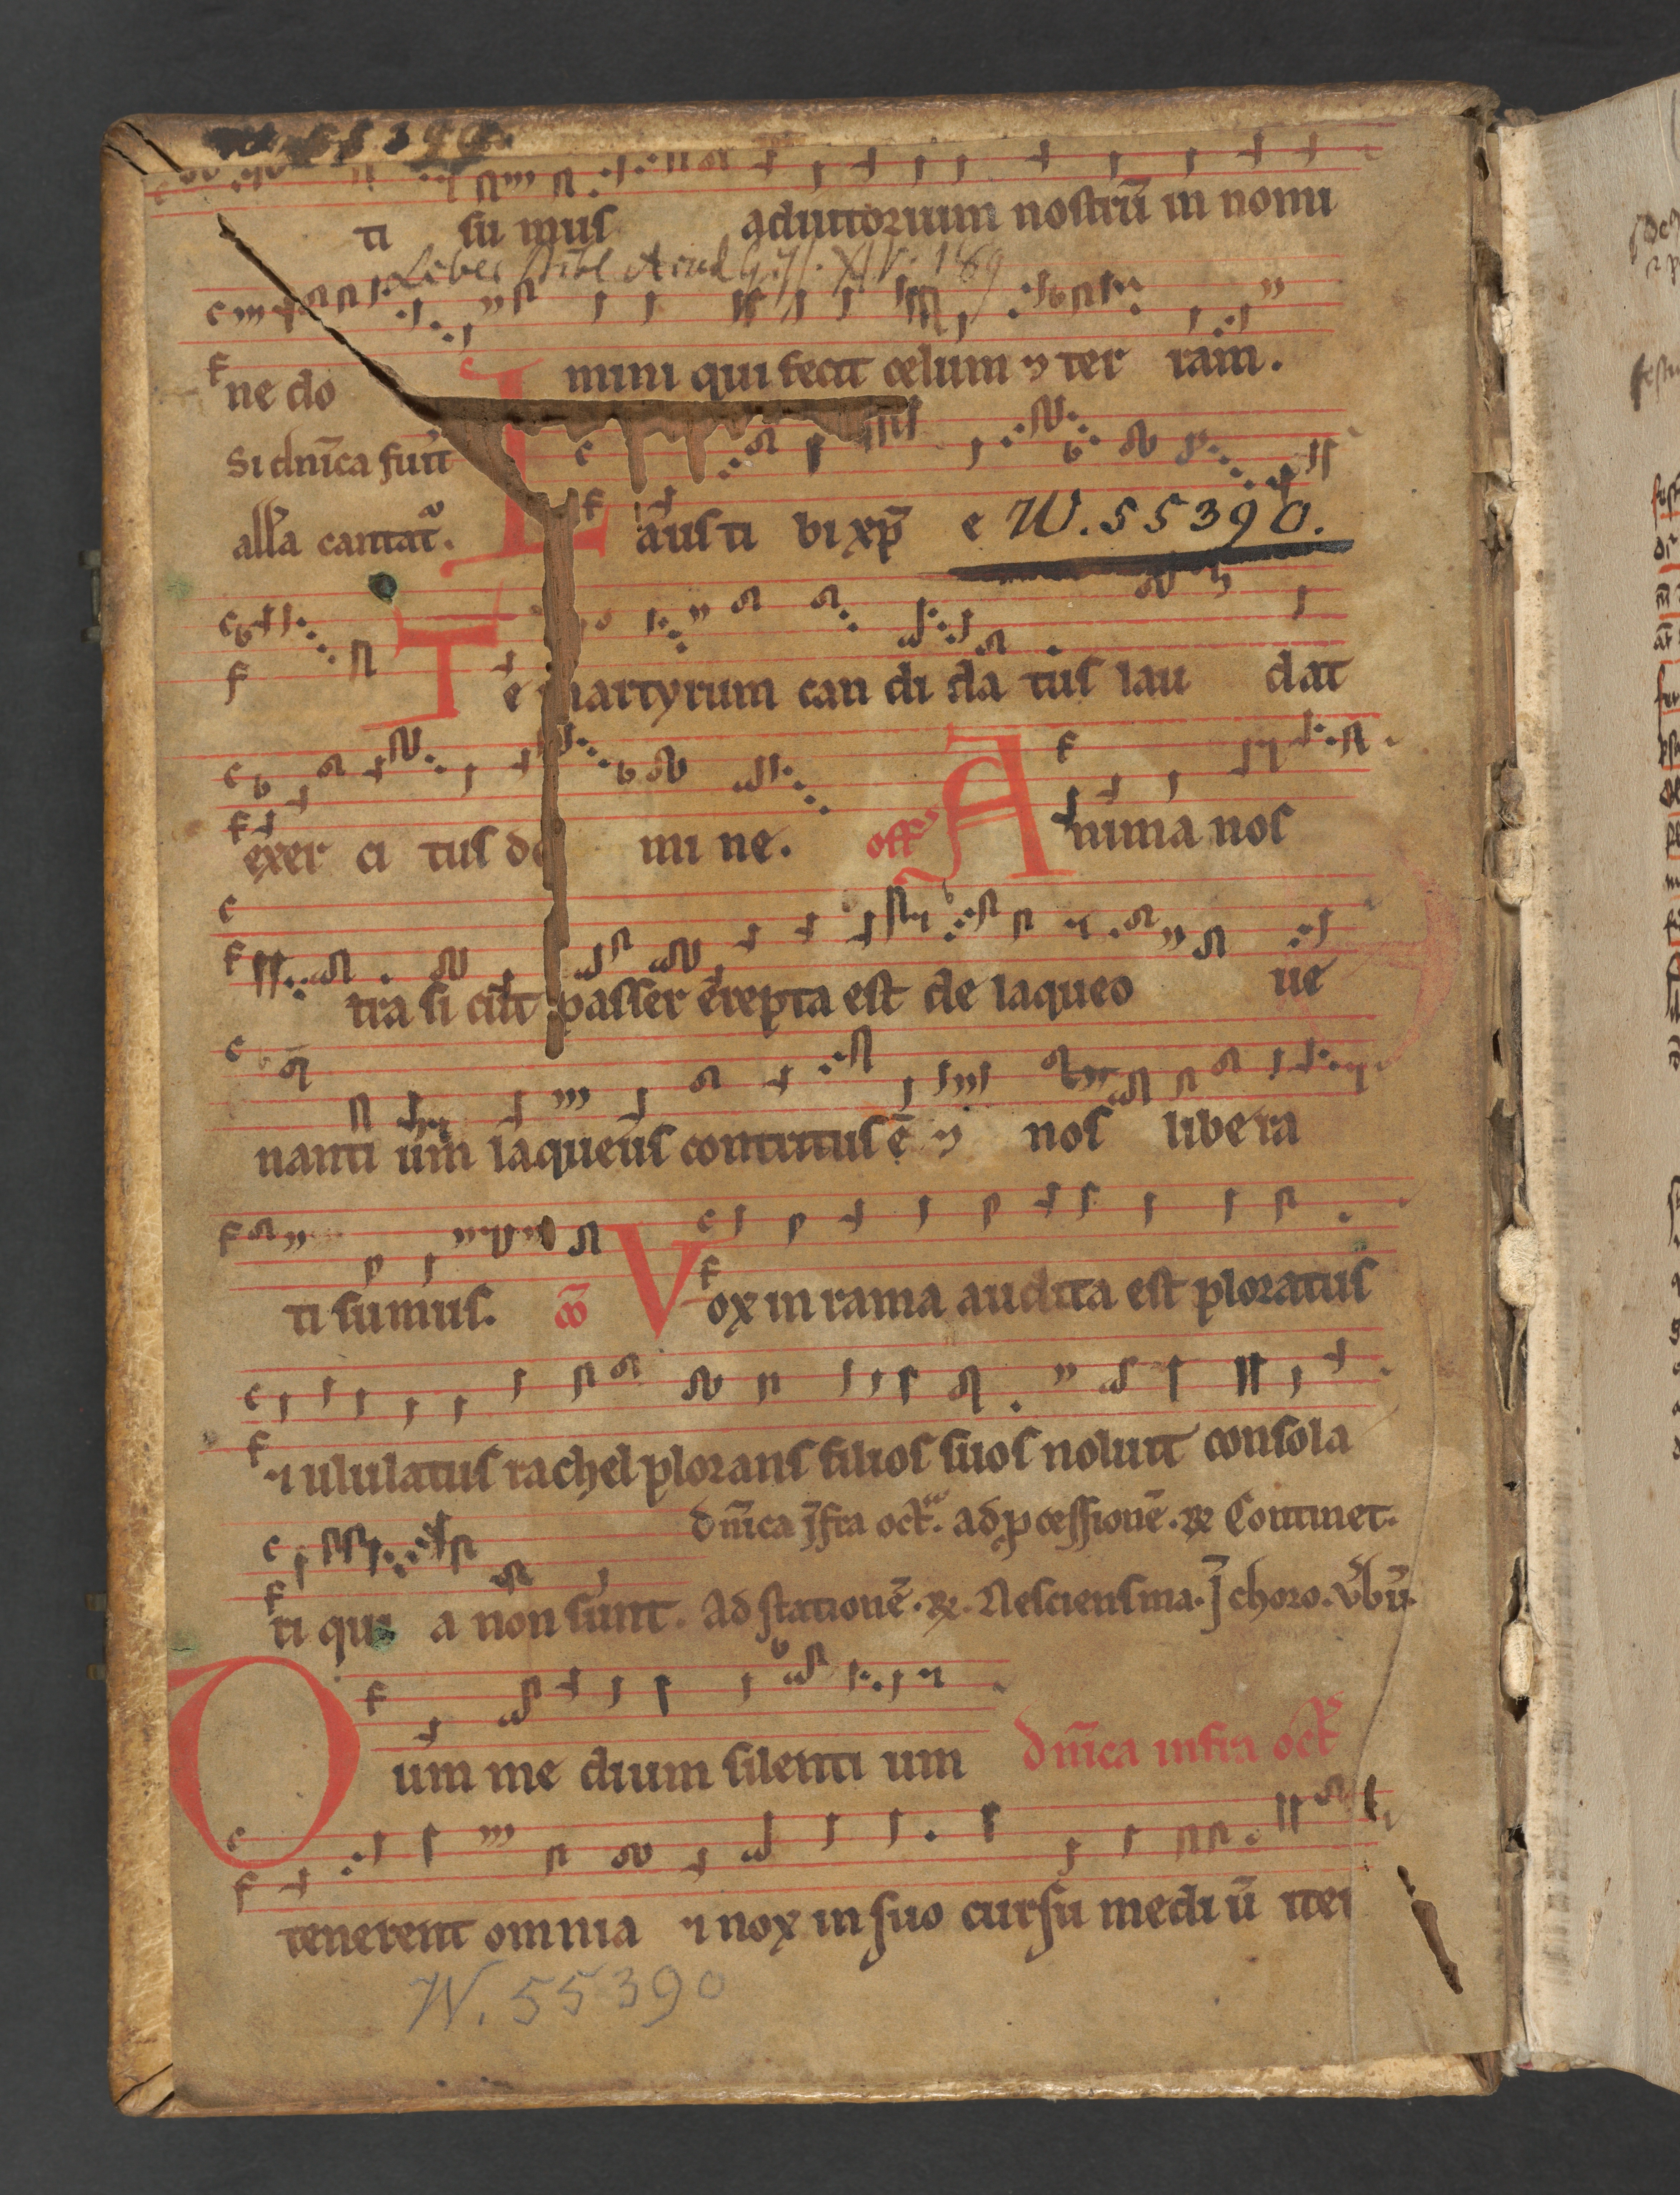 ti su mus adiutorium nostrū in nomi
ne do mini qui fecit celum ⁊ ter ram.
Si dn̄ica fuit̄
all̄a cantat᷑.
L aus ti bi xp̄ e W. 55390.
T e martyrum can di da tus lau dat
exer ci tus do mi ne. off A nima nos
tra si cut passer erepta est de laqueo ue
nanti um laqueus contritus ē ⁊ nos libera
ti sumus. co V ox in rama audita est ploratus
⁊ ululatus rachel plorans filios suos noluit consola
dn̄ica īfra oct. ad ꝓcessionē. R Continet.
ti qui a non sunt. Ad stationē. R. Nesciens ma. ī choro. v̄bū.
D um me dium silenti um dn̄ica infra oct
tenerent omnia ⁊ nox in suo cursu mediū iter
W. 55390